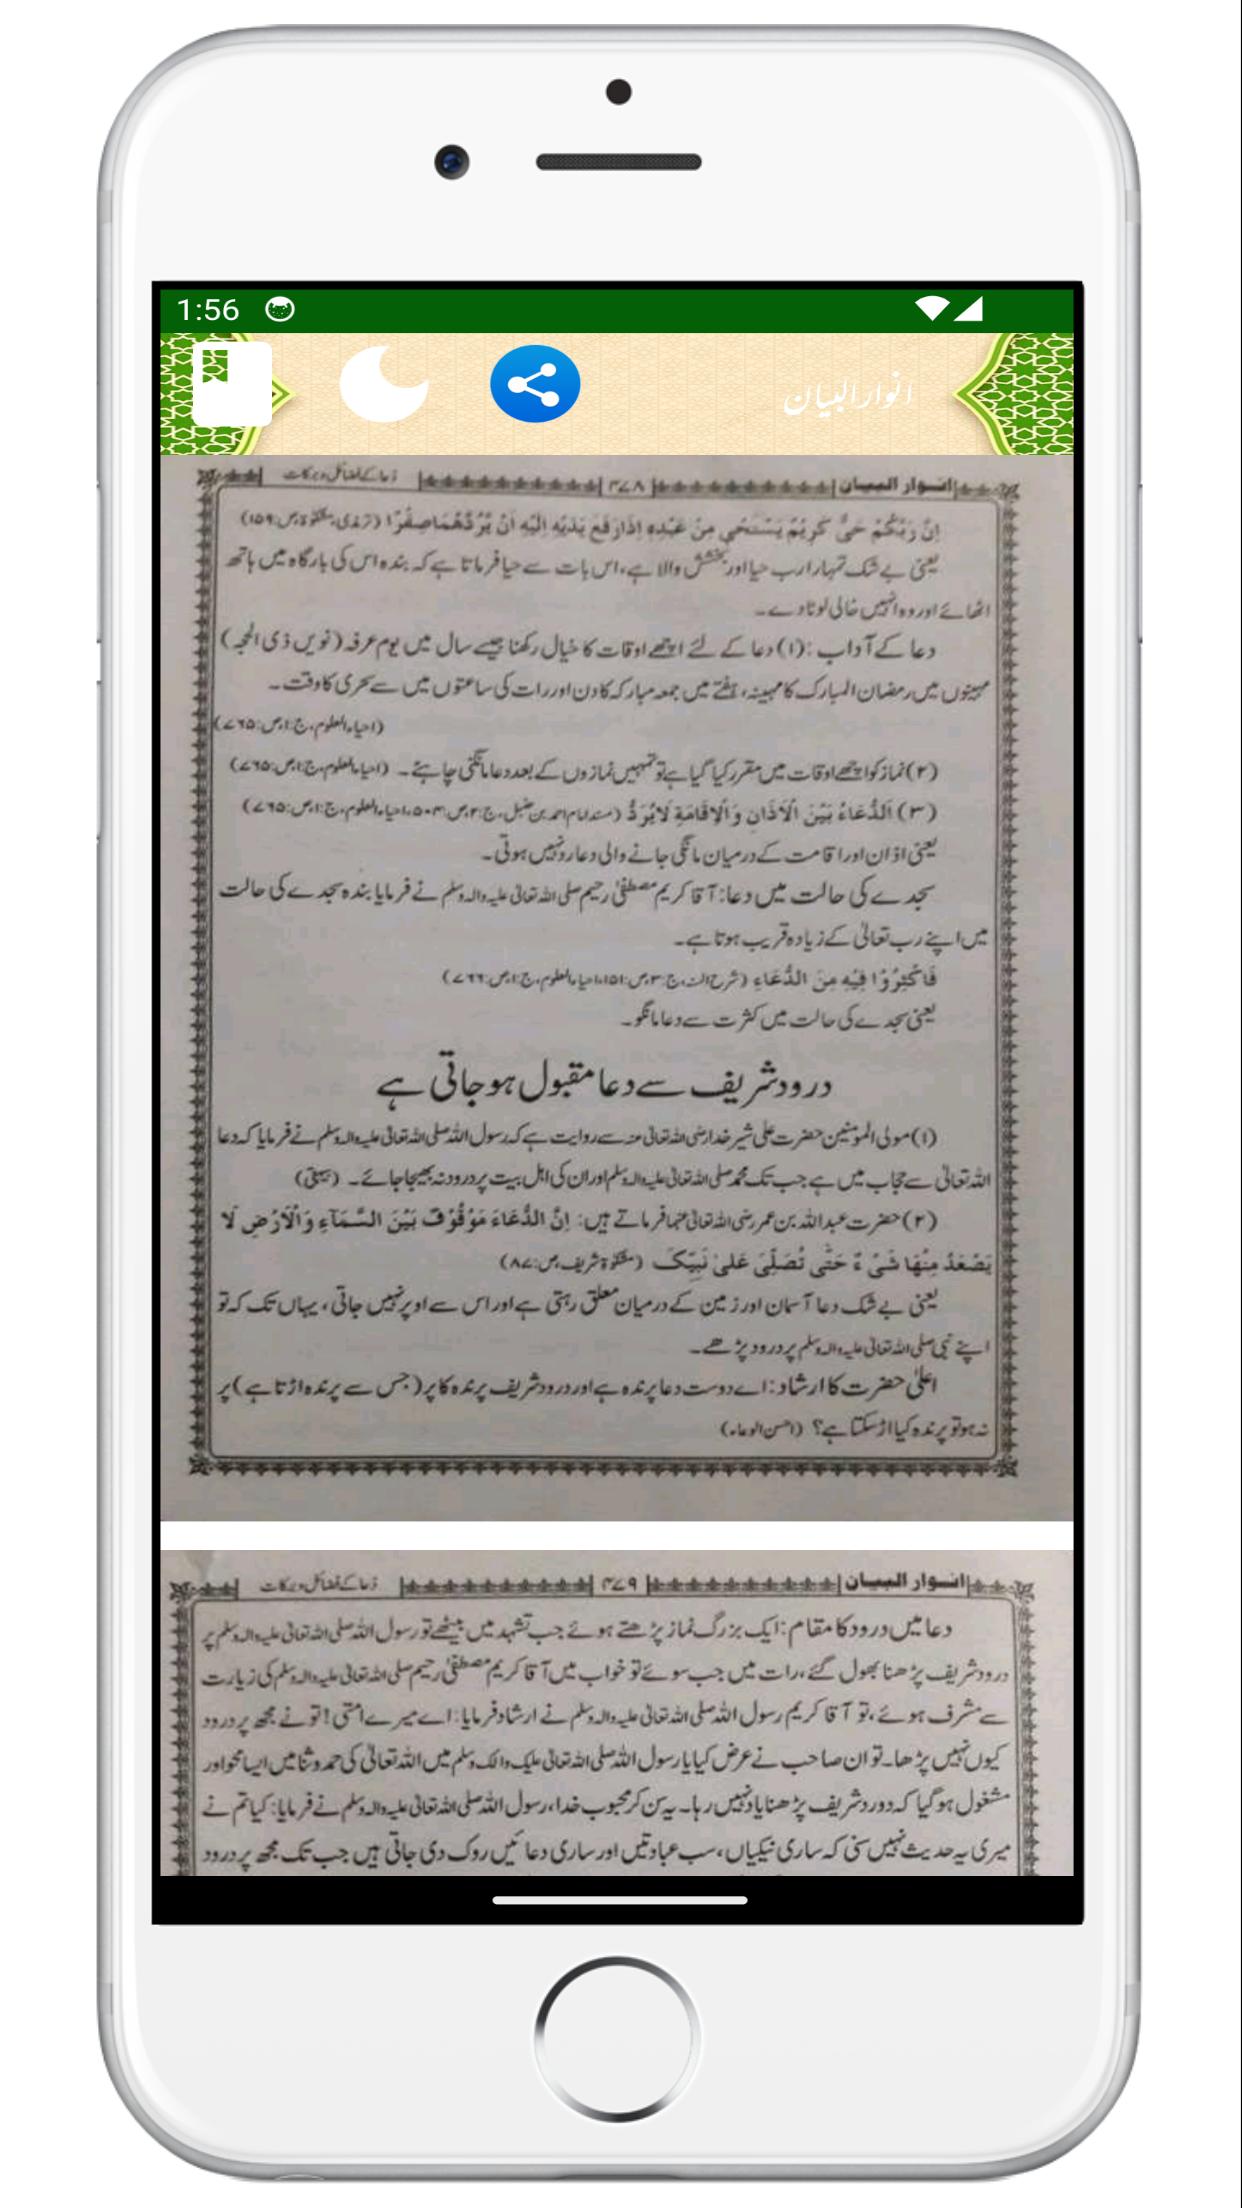 1:56
انوار البیان
انوار البیان ۴۷۸ دعا کے فضائل و برکات
اِنَّ رَبَّكُمْ حَيٌّ كَرِيْمٌ يَسْتَحْيِ مِنْ عَبْدِهٖ اِذَا رَفَعَ يَدَيْهِ اِلَيْهِ اَنْ يَّرُدَّهُمَا صِفْرًا (ترمذی، مشکوٰۃ، ص:۱۵۹)
یعنی بے شک تمہارا رب حیا اور بخشش والا ہے، اس بات سے حیا فرماتا ہے کہ بندہ اس کی بارگاہ میں ہاتھ
اٹھائے اور وہ انہیں خالی لوٹا دے۔
دعا کے آداب : (۱) دعا کے لئے اچھے اوقات کا خیال رکھنا جیسے سال میں یوم عرفہ (نویں ذی الحجہ)
مہینوں میں رمضان المبارک کا مہینہ، ہفتے میں جمعہ مبارکہ کا دن اور رات کی ساعتوں میں سے سحری کا وقت۔
(احیاء العلوم، ج:۱، ص:۷۶۵)
(۲) نماز کو اچھے اوقات میں مقرر کیا گیا ہے تو تمہیں نمازوں کے بعد دعا مانگنی چاہئے۔ (احیاء العلوم، ج:۱، ص:۷۶۵)
(۳) اَلدُّعَاءُ بَيْنَ الْاَذَانِ وَالْاِقَامَةِ لَايُرَدُّ (مسند امام احمد بن حنبل، ج:۳، ص:۵۰۴، احیاء العلوم، ج:۱، ص:۷۶۵)
یعنی اذان اور اقامت کے درمیان مانگی جانے والی دعا رد نہیں ہوتی۔
سجدے کی حالت میں دعا: آقا کریم مصطفیٰ رحیم صلی اللہ تعالیٰ علیہ والہ وسلم نے فرمایا بندہ سجدے کی حالت
میں اپنے رب تعالیٰ کے زیادہ قریب ہوتا ہے۔
فَاكْثِرُوْا فِيْهِ مِنَ الدُّعَاءِ (شرح السنہ، ج:۳، ص:۱۵۱، احیاء العلوم، ج:۱، ص:۷۶۶)
یعنی سجدے کی حالت میں کثرت سے دعا مانگو۔
درود شریف سے دعا مقبول ہو جاتی ہے
(۱) مولی المومنین حضرت علی شیر خدا رضی اللہ تعالیٰ عنہ سے روایت ہے کہ رسول اللہ صلی اللہ تعالیٰ علیہ والہ وسلم نے فرمایا کہ دعا
اللہ تعالیٰ سے حجاب میں ہے جب تک محمد صلی اللہ تعالیٰ علیہ والہ وسلم اور ان کی اہل بیت پر درود نہ بھیجا جائے۔ (بیہقی)
(۲) حضرت عبداللہ بن عمر رضی اللہ تعالیٰ عنہما فرماتے ہیں: اِنَّ الدُّعَاءَ مَوْقُوْفٌ بَيْنَ السَّمَآءِ وَالْاَرْضِ لَا
يَصْعَدُ مِنْهَا شَيْءٌ حَتّٰى تُصَلِّىَ عَلٰى نَبِيِّكَ (مشکوٰۃ شریف، ص:۸۷)
یعنی بے شک دعا آسمان اور زمین کے درمیان معلق رہتی ہے اور اس سے اوپر نہیں جاتی، یہاں تک کہ تو
اپنے نبی صلی اللہ تعالیٰ علیہ والہ وسلم پر درود پڑھے۔
اعلیٰ حضرت کا ارشاد: اے دوست دعا پرندہ ہے اور درود شریف پرندہ کا پر (جس سے پرندہ اڑتا ہے) پر
نہ ہو تو پرندہ کیا اڑ سکتا ہے؟ (احسن الوعاء)
انوار البیان ۴۷۹ دعا کے فضائل و برکات
دعا میں درود کا مقام: ایک بزرگ نماز پڑھتے ہوئے جب تشہد میں بیٹھے تو رسول اللہ صلی اللہ تعالیٰ علیہ والہ وسلم پر
درود شریف پڑھنا بھول گئے، رات میں جب سوئے تو خواب میں آقا کریم مصطفیٰ رحیم صلی اللہ تعالیٰ علیہ والہ وسلم کی زیارت
سے مشرف ہوئے، تو آقا کریم رسول اللہ صلی اللہ تعالیٰ علیہ والہ وسلم نے ارشاد فرمایا: اے میرے امتی! تو نے مجھ پر درود
کیوں نہیں پڑھا۔ تو ان صاحب نے عرض کیا یا رسول اللہ صلی اللہ تعالیٰ علیک والک وسلم میں اللہ تعالیٰ کی حمد و ثنا میں ایسا محو اور
مشغول ہو گیا کہ درود شریف پڑھنا یاد نہیں رہا۔ یہ سن کر محبوب خدا، رسول اللہ صلی اللہ تعالیٰ علیہ والہ وسلم نے فرمایا: کیا تم نے
میری یہ حدیث نہیں سنی کہ ساری نیکیاں، سب عبادتیں اور ساری دعائیں روک دی جاتی ہیں جب تک مجھ پر درود